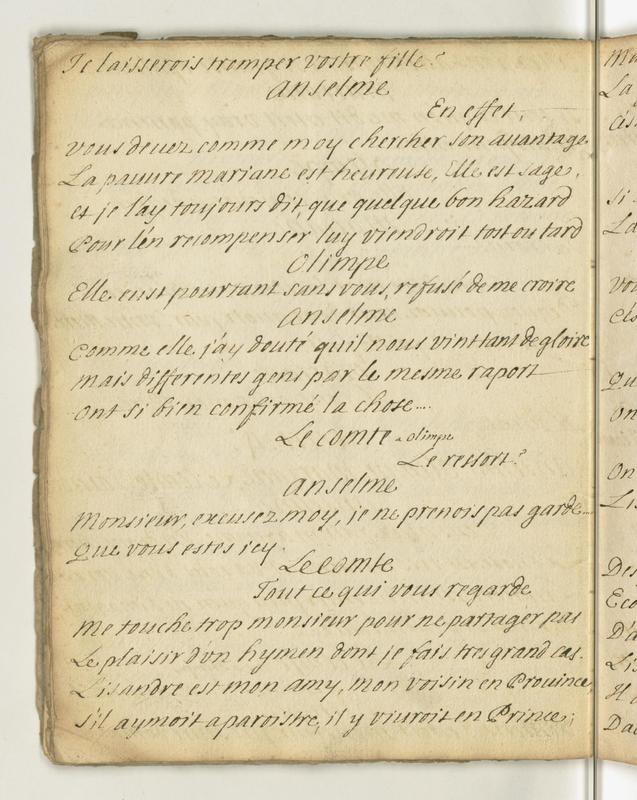 Je laisserois tromper vostre fille?
Anselme
En effet,
vous devez comme moy chercher son auantage
La pauure mariane est heureuse, Elle est sage,
et je l'ay toujours dit, que quelque bon hazard
Pour l'en recompenser luy viendroit tost ou tard
Olimpe
Elle eust pourtant sans vous, refusé de me croire
Anselme
Comme elle j'ay douté quil nous vint tant de gloire
mais differentes gens par le mesme raport
ont si bien confirmé la chose....
Le comte a olimpe
Le ressort?
Anselme
Monsieur, excusez moy, je ne prenois pas garde...
Que vous estes icy.
Le comte
Tout ce qui vous regarde
me touche trop monsieur pour ne partager pas
Le plaisir d'vn hymen dont je fais tres grand cas.
Lisandre est mon amy, mon voisin en Prouince,
S'il aymoit a paroistre, il y viuroit en Prince;
La
si
La
vou
Qu
on
on
Lis
Des
Eco
D'a
Lis
Il
Da